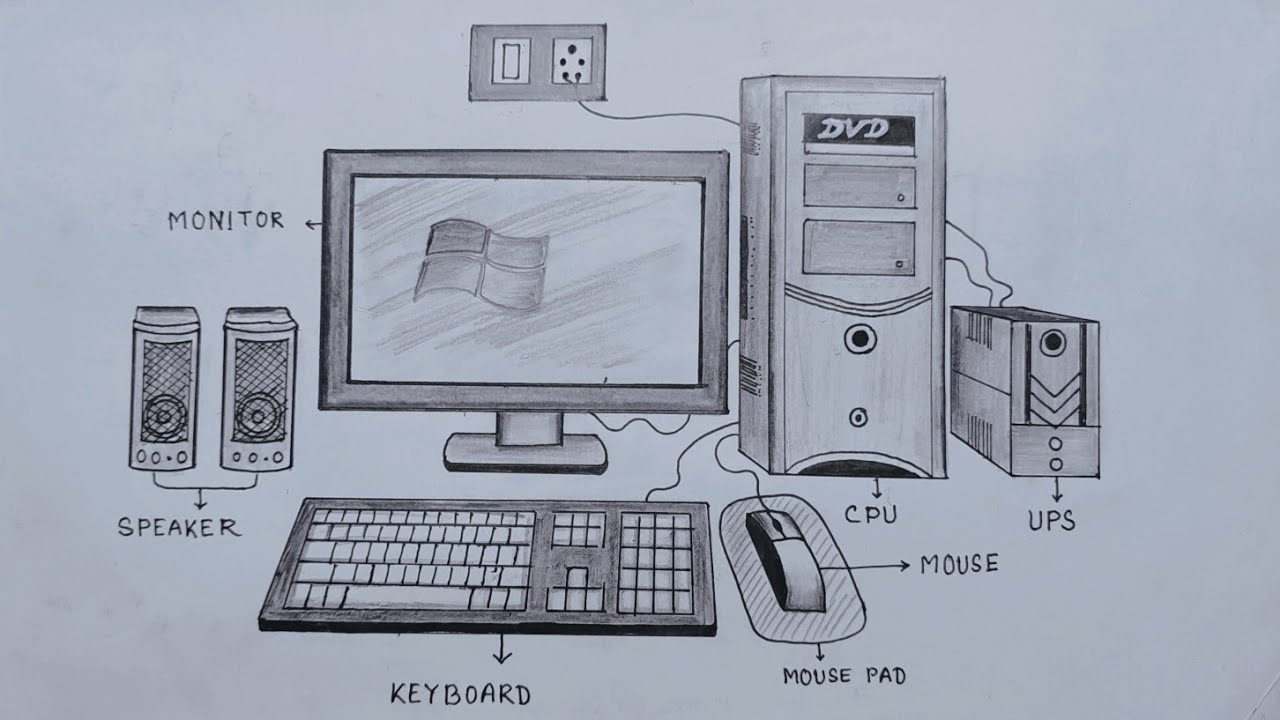 DVD
MONITOR
SPEAKER
CPU
UPS
MOUSE
MOUSE PAD
KEYBOARD